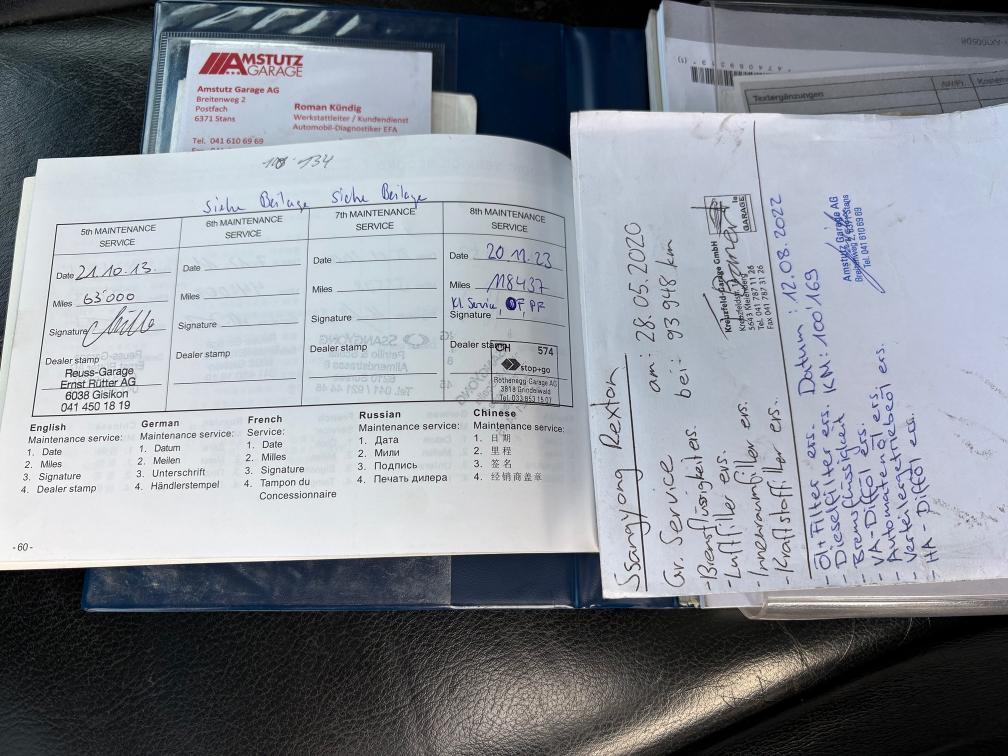 AMSTUTZ
GARAGE
Amstutz Garage AG
Breitenweg 2
Postfach
6371 Stans
Tel. 041 610 69 69
Roman Kündig
Werkstattleiter / Kundendienst
Automobil-Diagnostiker EFA
Textergänzungen
134
siehe Beilage siehe Beilage
5th MAINTENANCE
SERVICE
Date 21.10.13.
Miles 63'000
Signature
Dealer stamp
Reuss-Garage
Ernst Rütter AG
6038 Gisikon
041 450 18 19
6th MAINTENANCE
SERVICE
Date
Miles
Signature
Dealer stamp
7th MAINTENANCE
SERVICE
Date
Miles
Signature
Dealer stamp
8th MAINTENANCE
SERVICE
Date 20 11.23
Miles 118437
Kl. Service, OF, PF
Signature
Dealer stamp
CH 574
stop+go
Rothenegg-Garage AG
3818 Grindelwald
Tel. 033 853 15 07
English
Maintenance service:
1. Date
2. Miles
3. Signature
4. Dealer stamp
German
Maintenance service:
1. Datum
2. Meilen
3. Unterschrift
4. Händlerstempel
French
Service:
1. Date
2. Milles
3. Signature
4. Tampon du
Concessionnaire
Russian
Maintenance service:
1. Дата
2. Мили
3. Подпись
4. Печать дилера
Chinese
Maintenance service:
1. 日期
2. 里程
3. 签名
4. 经销商盖章
-60-
Ssangyong Rexton
Gr. Service am: 28.05.2020
- Bremsflüssigkeit ers. bei: 93 948 km
- Luftfilter ers.
- Innenraumfilter ers.
- Kraftstoffilter ers.
Kreuzfeld-Garage GmbH
5643 Meienberg
Tel. 041 787 11 26
Fax 041 787 31 26
le
GARAGE
- Öl Filter ers. Datum: 12.08.2022
- Dieselfilter ers. KM: 100'169
- Bremsflüssigkeit
- VA-Diffö ers.
- Automatenöl ers.
- Verteilergetriebeöl ers.
- HA-Difföl ers.
Amstutz Garage AG
Breitenweg 2, 6371 Stans
Tel. 041 610 69 69